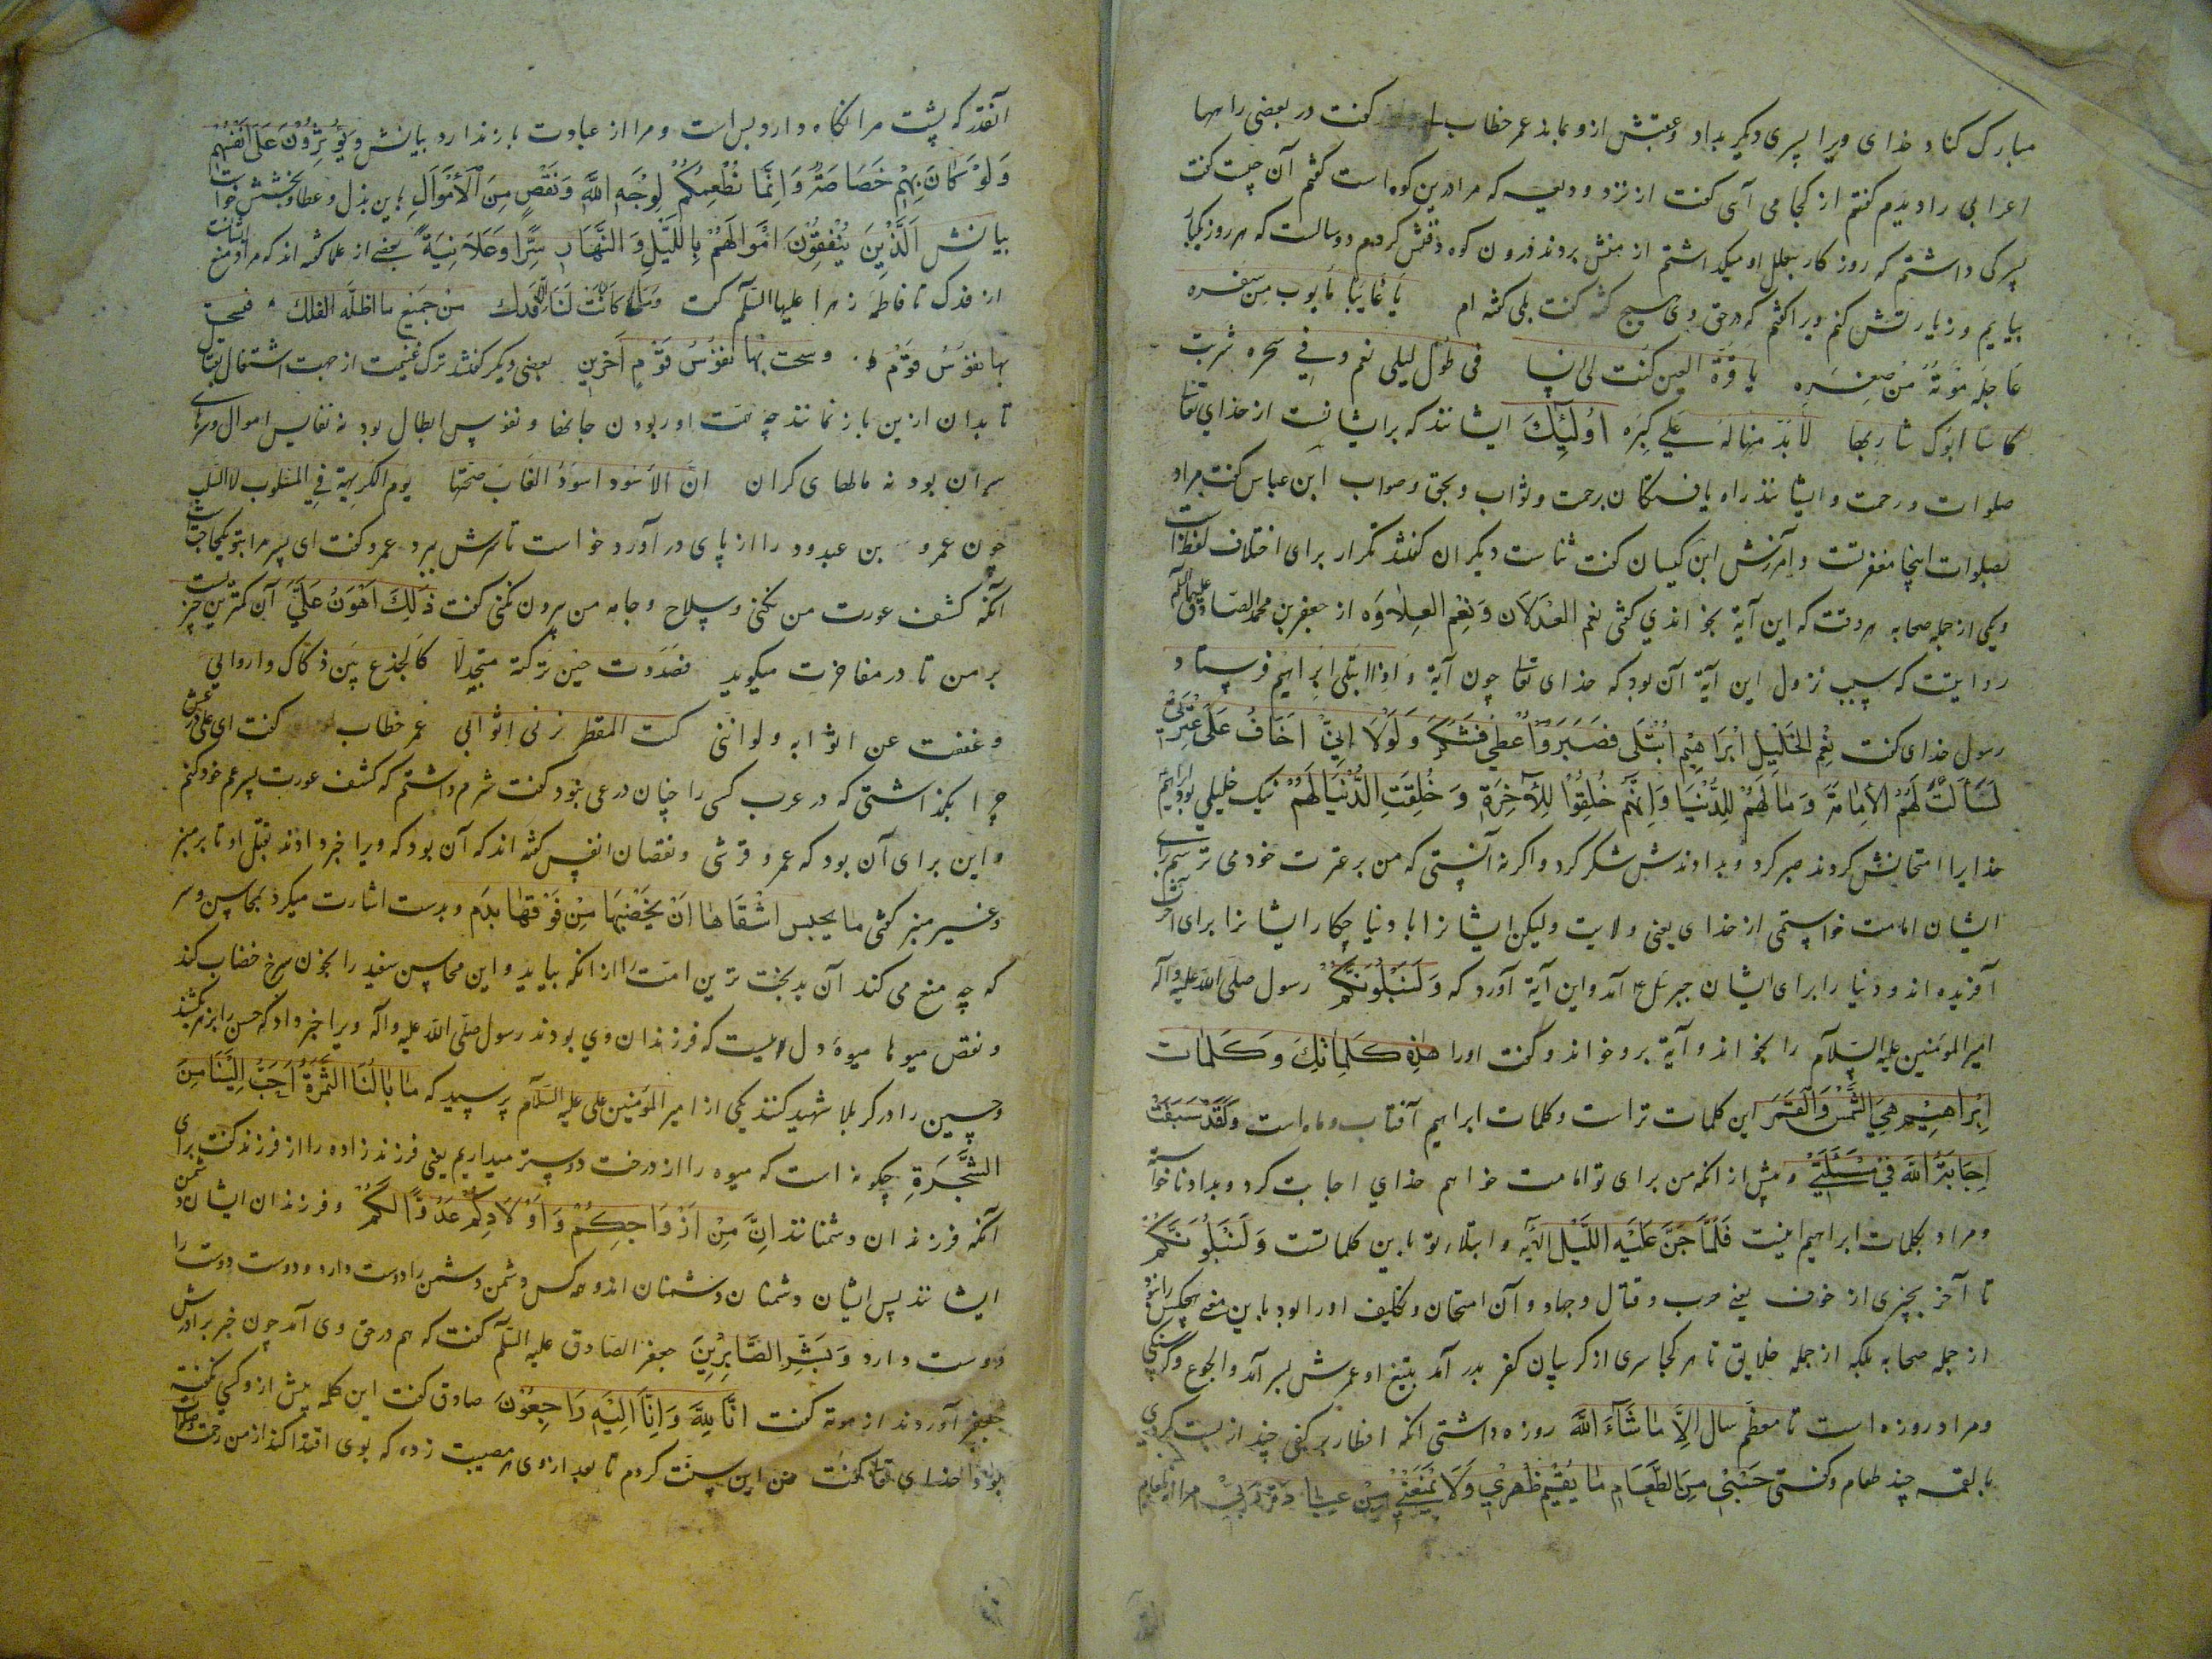 مبارک کناد خدای ویرا پسری دیگر بداد و عقبش ازو بماند عمر خطاب گفت در بعضی راهها
اعرابی را دیدم گفتم از کجا می آیی گفت از نزد ودیعه که مرا درین کوه است گفتم آن چیست گفت
پسرکی داشتم که روزگار بتعلل او میگذاشتم از منش بردند فرون کوه دفنش کردم دو سالست که هر روز یکبار
بیایم و زیارتش کنم ویرا گفتم که در حق وی هیچ گفته گفت بلی گفته ام یا غایبا مایوب من سفره
عاجله موته من صغره یا قرة العین کنت لی انسا فی طول لیلی نعم وفی سحره شربت
کاسا ابوک شاربها لابد منها له علی کبره اولئک ایشانند که برایشانست از خدای تعا
صلوات و رحمت و ایشانند راه یافتگان برحمت و ثواب و بحق و صواب ابن عباس گفت مراد
بصلوات اینجا مغفرتست و آمرزش ابن کیسان گفت ثناست دیگران گفتند تکرار برای اختلاف لفظ است
ویکی از جمله صحابه هر وقت که این آیة بخواندی گفتی نعم العدلان ونعم العلاوه از جعفر بن محمد الصادق علیهما السلم
روایتست که سبب نزول این آیة آن بود که خدای تعا چون آیة و اذا ابتلی ابراهیم فرستاد
رسول خدای گفت نعم الخلیل ابراهیم ابتلی فصبر واعطی فشکر ولولا انی اخاف علی عترتی
لسألت لهم الامامة وما لهم للدنیا وانهم خلقوا للآخرة وخلقت الدنیا لهم نیک خلیلی بود ابراهیم
خدایرا امتحانش کردند صبر کرد و بدادندش شکر کرد و اگر نه آنستی که من بر عترت خود می ترسم برای
ایشان امامت خواستمی از خدای یعنی ولایت ولیکن ایشانرا با دنیا چکار ایشانرا برای آخرت
آفریده اند و دنیا را برای ایشان جبرئیل آمد و این آیة آورد که ولنبلونکم رسول صلی الله علیه وآله
امیر المومنین علیه السلام را بخواند و آیة برو خواند و گفت اورا هذه کلماتک وکلمات
ابراهیم هی الشمس والقمر این کلمات تراست و کلمات ابراهیم آفتاب و ماه است ولقد سبقت
اجابة الله فی مسئلتی و پیش از آنکه من برای تو امامت خواهم خدای اجابت کرد و بداد ناخواسته
و مراد بکلمات ابراهیم اینست فلما جن علیه اللیل الآیه و ابتلاء تو باین کلماتست ولنبلونکم
تا آخر بچیزی از خوف یعنی حرب و قتال و جهاد و آن امتحان و تکلیف اورا بود باین معنی هیچکس را نبود
از جمله صحابه بلکه از جمله خلایق تا هر کجا سری از گریبان کفر بدر آمد بتیغ او عمرش بسر آمد والجوع و گرسنگی
و مراد روزه است تا معظم سال الا ماشاء الله روزه داشتی آنکه افطار بر کفی چند از پست کردی
یا لقمه چند طعام و گفتی حسبی من الطعام ما یقیم ظهری ولا یمنعنی من عبادة ربی مرا از طعام
آنقدر که پشت مرا نگاه دارد بس است و مرا از عبادت باز ندارد بیانش ویؤثرون علی انفسهم
ولو کان بهم خصاصة وانما نطعمکم لوجه الله ونقص من الاموال باین بذل و عطا و بخشش خواست
بیانش الذین ینفقون اموالهم باللیل والنهار سرا وعلانیة بعضی از علما گفته اند که مراد منع ایشانست
از فدک تا فاطمه زهرا علیها السلم گفت وما کانت لنا فدک من جمیع ما اظله الفلک فسخت
بها نفوس قوم وسخت بها نفوس قوم آخرین بعضی دیگر گفتند ترک غنیمت از جهت اشتغال بقتال
تا بدان ازین باز نماند چه همت او ربودن جانها و نفوس ابطال بود نه نفایس اموال و سرهای
سران بود نه مالهای گران ان الاسود اسود الغاب همتها یوم الکریهة فی المسلوب لا السلب
چون عمرو بن عبدود را از پای در آورد خواست تا سرش ببرد عمرو گفت ای پسر مرا بتو یکحاجتست
آنکه کشف عورت من نکنی و سلاح و جامه من بیرون نکنی گفت ذلک اهون علی آن کمترین چیزیست
بر من تا در مفاخرت میگوید فصددت حین ترکته متجدلا کالجذع بین دکادک وروابی
وعففت عن اثوابه ولو اننی کنت المقطر بزنی اثوابی عمر خطاب گفت ای علی درعش
چرا بگذاشتی که در عرب کسی را چنان درعی نبود گفت شرم داشتم که کشف عورت پسر عم خود کنم
و این برای آن بود که عمرو قرشی و نقصان انفس گفته اند که آن بود که ویرا خبر دادند بقتل او تا بر منبر
و غیر منبر گفتی ما یحبس اشقاها ان یخضبها من فوقها بدم و بدست اشارت میکرد بمحاسن و سر
که چه منع می کند آن بدبخت ترین امت را از آنکه بیاید و این محاسن سفید را بخون سرخ خضاب کند
و نقص میوها میوه دل ویست که فرزندان وی بودند رسول صلی الله علیه وآله ویرا خبر داد که حسن را بزهر بکشند
و حسین را در کربلا شهید کنند یکی از امیر المؤمنین علی علیه السلام پرسید که ما بالنا الثمرة احب الینا من
الشجرة چگونه است که میوه را از درخت دوستر میداریم یعنی فرزند زاده را از فرزند گفت برای
آنکه فرزندان دشمنانند ان من ازواجکم واولادکم عدوا لکم و فرزندان ایشان دشمن
ایشانند پس ایشان دشمنان دشمنان اند و هر کس دشمن دشمن را دوست دارد و دوست دوست را
دوست دارد وبشر الصابرین جعفر الصادق علیه السلم گفت که هم در حق وی آمد چون خبر برادرش
جعفر آوردند از موته گفت انا لله وانا الیه راجعون صادق گفت این کلمه پیش ازو کسی نگفته
بود خدای تعا گفت من این سنت کردم تا بعد ازوی هر مصیبت زده که بوی اقتدا کند از من رحمت و صلوات